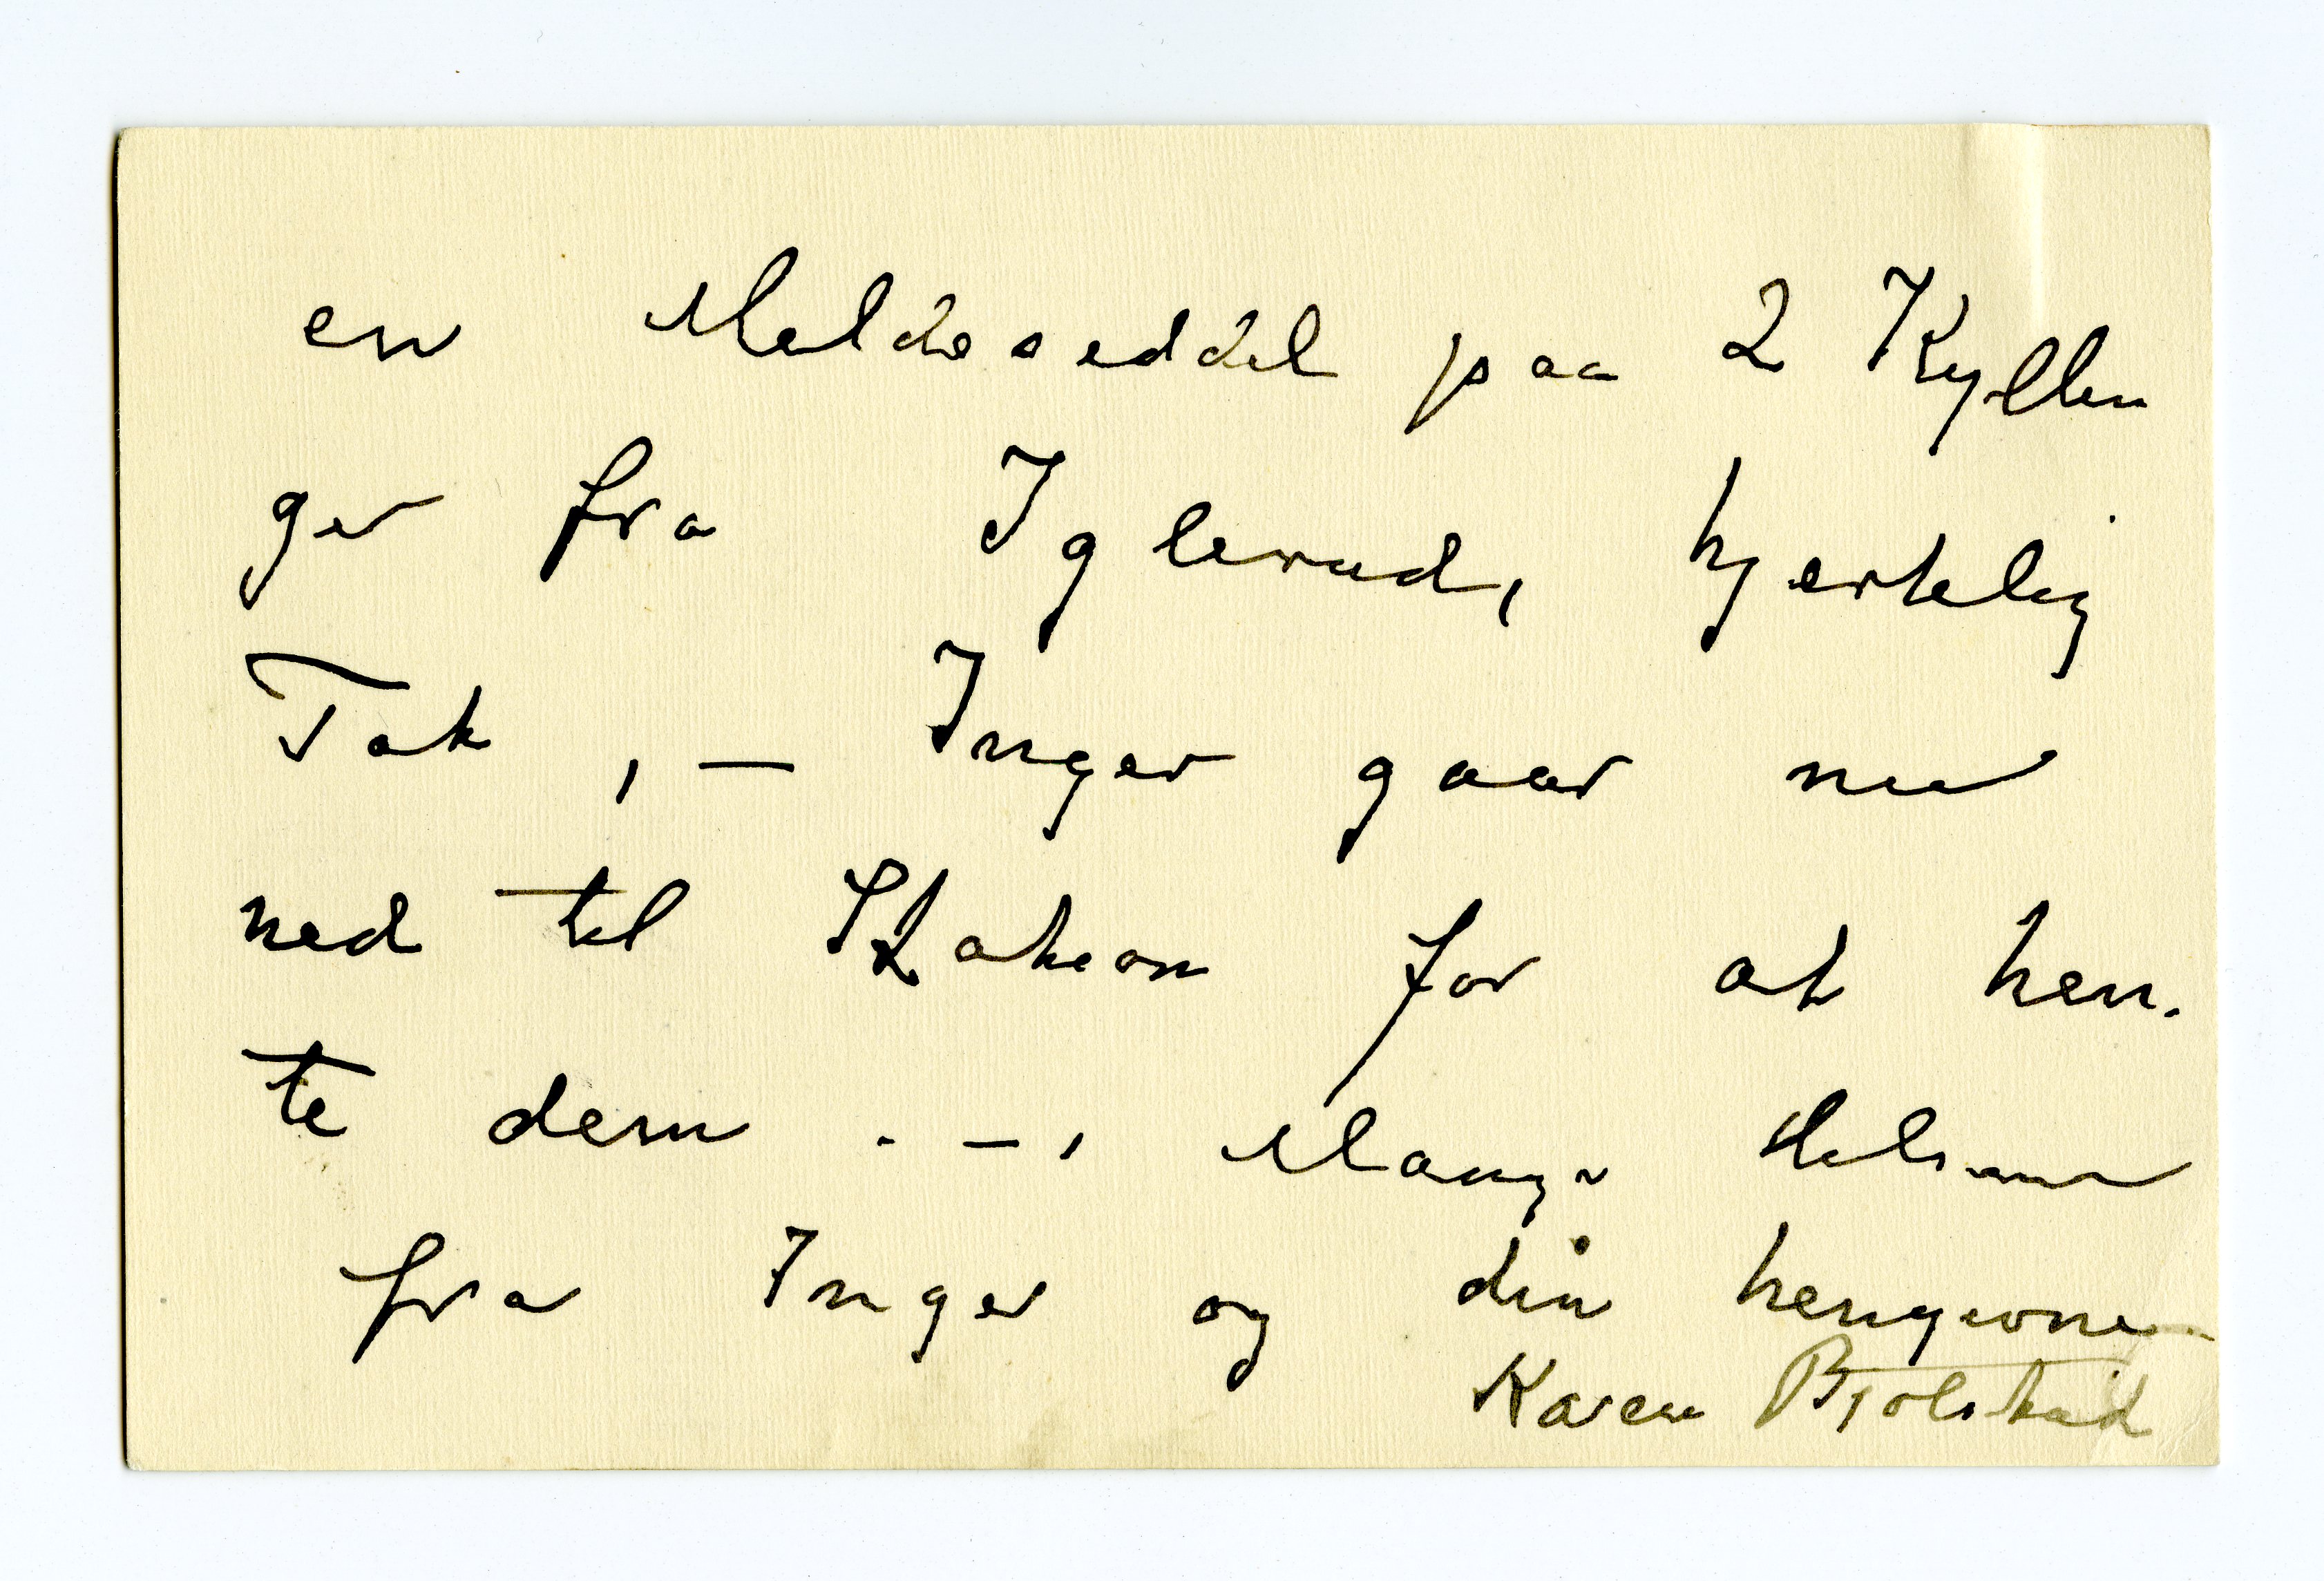 en Meldeseddel paa 2 Kyllin
ger fra Iglerud, hjertelig
Tak, — Inger gaar nu
ned til Station for at hen-
te dem . – , Mange Helsener
fra Inger og din hengivne
Karen Bjølstad